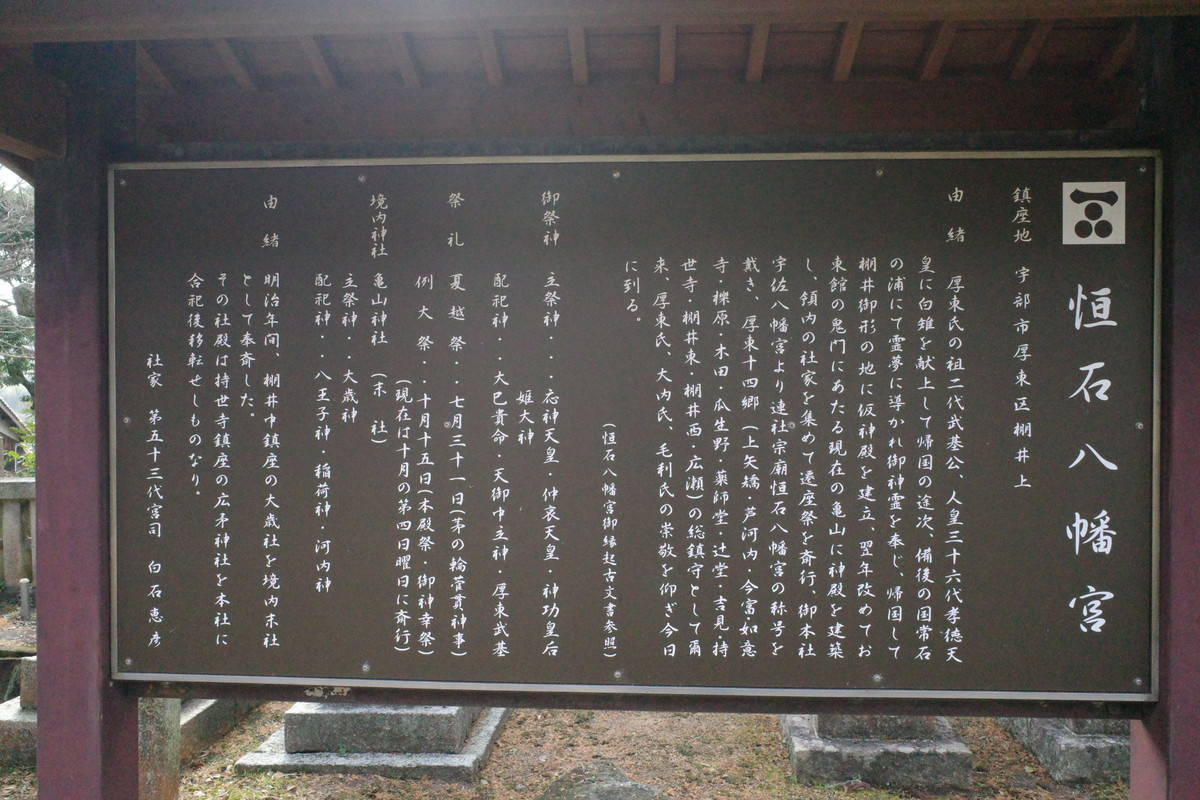 恒石八幡宮
鎮座地 宇部市厚東区棚井上
由緒 厚東氏の祖二代武基公、人皇三十六代孝徳天
皇に白雉を献上して帰国の途次、備後の国常石
の浦にて霊夢に導かれ御神霊を奉じ、帰国して
棚井御形の地に仮神殿を建立、翌年改めてお
東館の鬼門にあたる現在の亀山に神殿を建築
し、領内の社家を集めて遷座祭を斎行、御本社
宇佐八幡宮より連社宗廟恒石八幡宮の称号を
戴き、厚東十四郷(上矢矯・芦河内・今富・如意
寺・櫟原・木田・瓜生野・薬師堂・辻堂・吉見・持
世寺・棚井東・棚井西・広瀬)の総鎮守として爾
来、厚東氏、大内氏、毛利氏の崇敬を仰ぎ今日
に到る。
(恒石八幡宮御縁起古文書参照)
御祭神 主祭神・・・応神天皇・仲哀天皇・神功皇后
姫大神
配祀神・・大己貴命・天御中主神・厚東武基
祭礼 夏越祭・・七月三十一日(茅の輪菅貫神事)
例大祭・・十月十五日(本殿祭・御神幸祭)
(現在は十月の第四日曜日に斎行)
境内神社 亀山神社(末社)
主祭神・・大歳神
配祀神・・八王子神・稲荷神・河内神
由緒 明治年間、棚井中鎮座の大歳社を境内末社
として奉斎した。
その社殿は持世寺鎮座の広矛神社を本社に
合祀後移転せしものなり。
社家 第五十三代宮司 白石恵彦